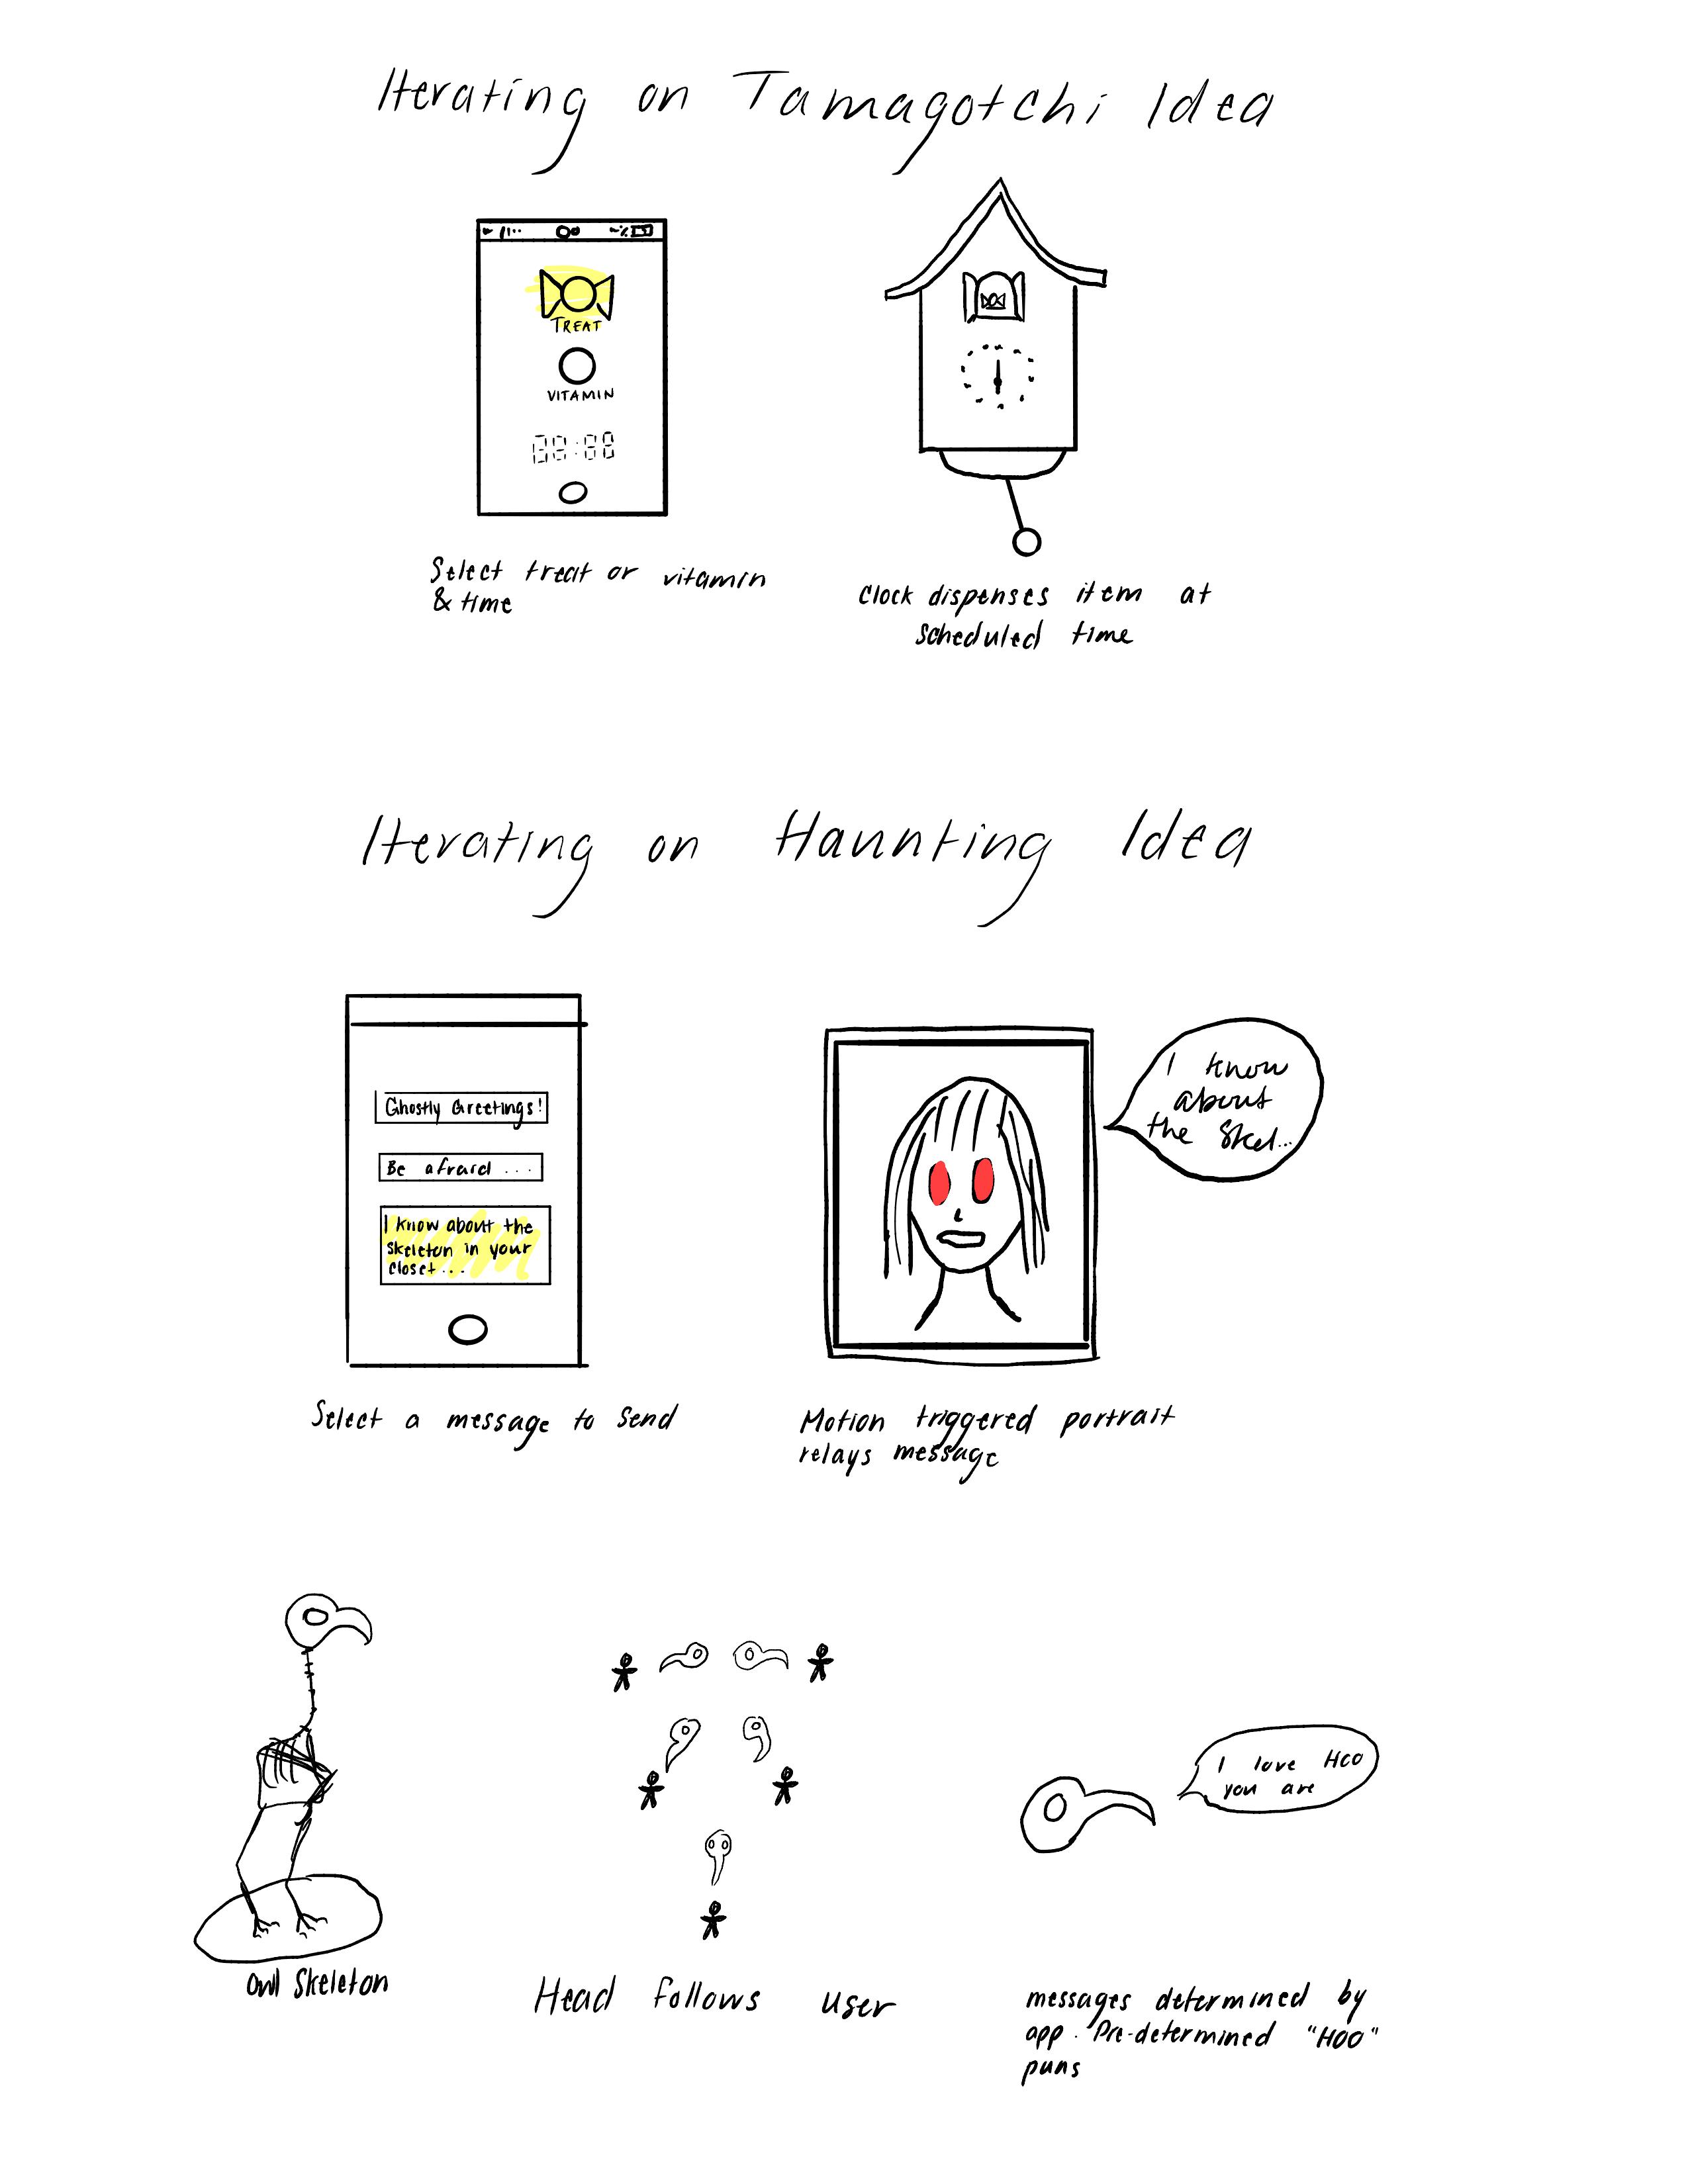 Iterating on Tamagotchi Idea
TREAT
VITAMIN
88:88
Select treat or vitamin
& time
Clock dispenses item at
scheduled time
Iterating on Haunting Idea
Ghostly Greetings!
Be afraid ...
I know about the
skeleton in your
closet...
I know
about
the Skel...
Select a message to send
Motion triggered portrait
relays message
I love HOO
you are
Owl Skeleton
Head follows user
messages determined by
app. Pre-determined "HOO"
puns